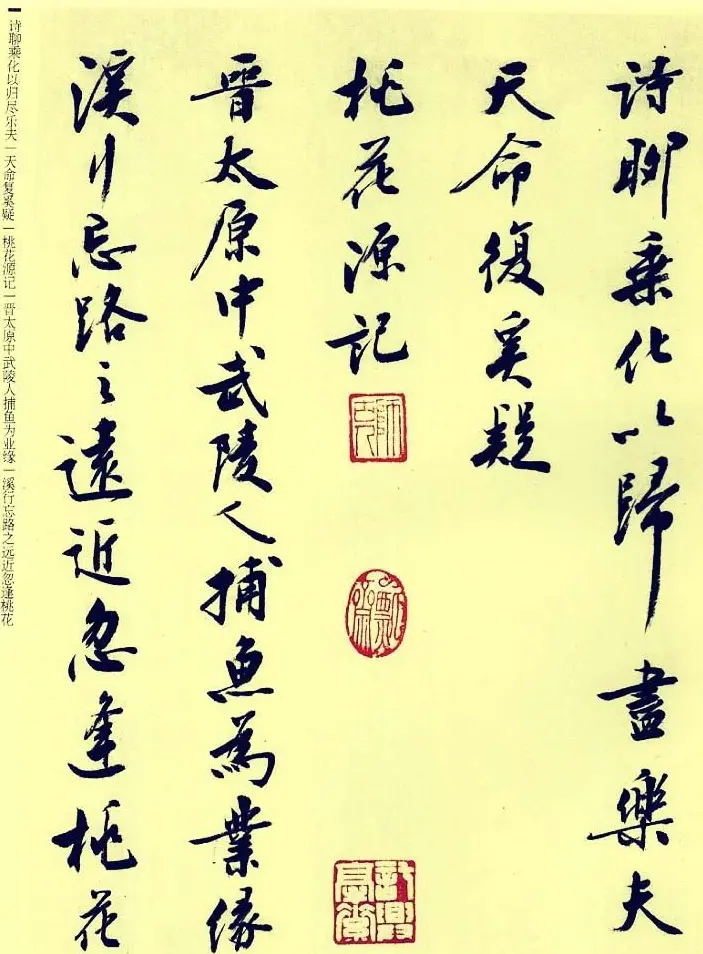 詩聊乗化以歸盡樂夫
天命復奚疑
桃花源記
晉太原中武陵人捕魚為業縁
溪行忘路之遠近忽逢桃花
诗聊乘化以归尽乐夫｜天命复奚疑｜桃花源记｜晋太原中武陵人捕鱼为业缘｜溪行忘路之远近忽逢桃花